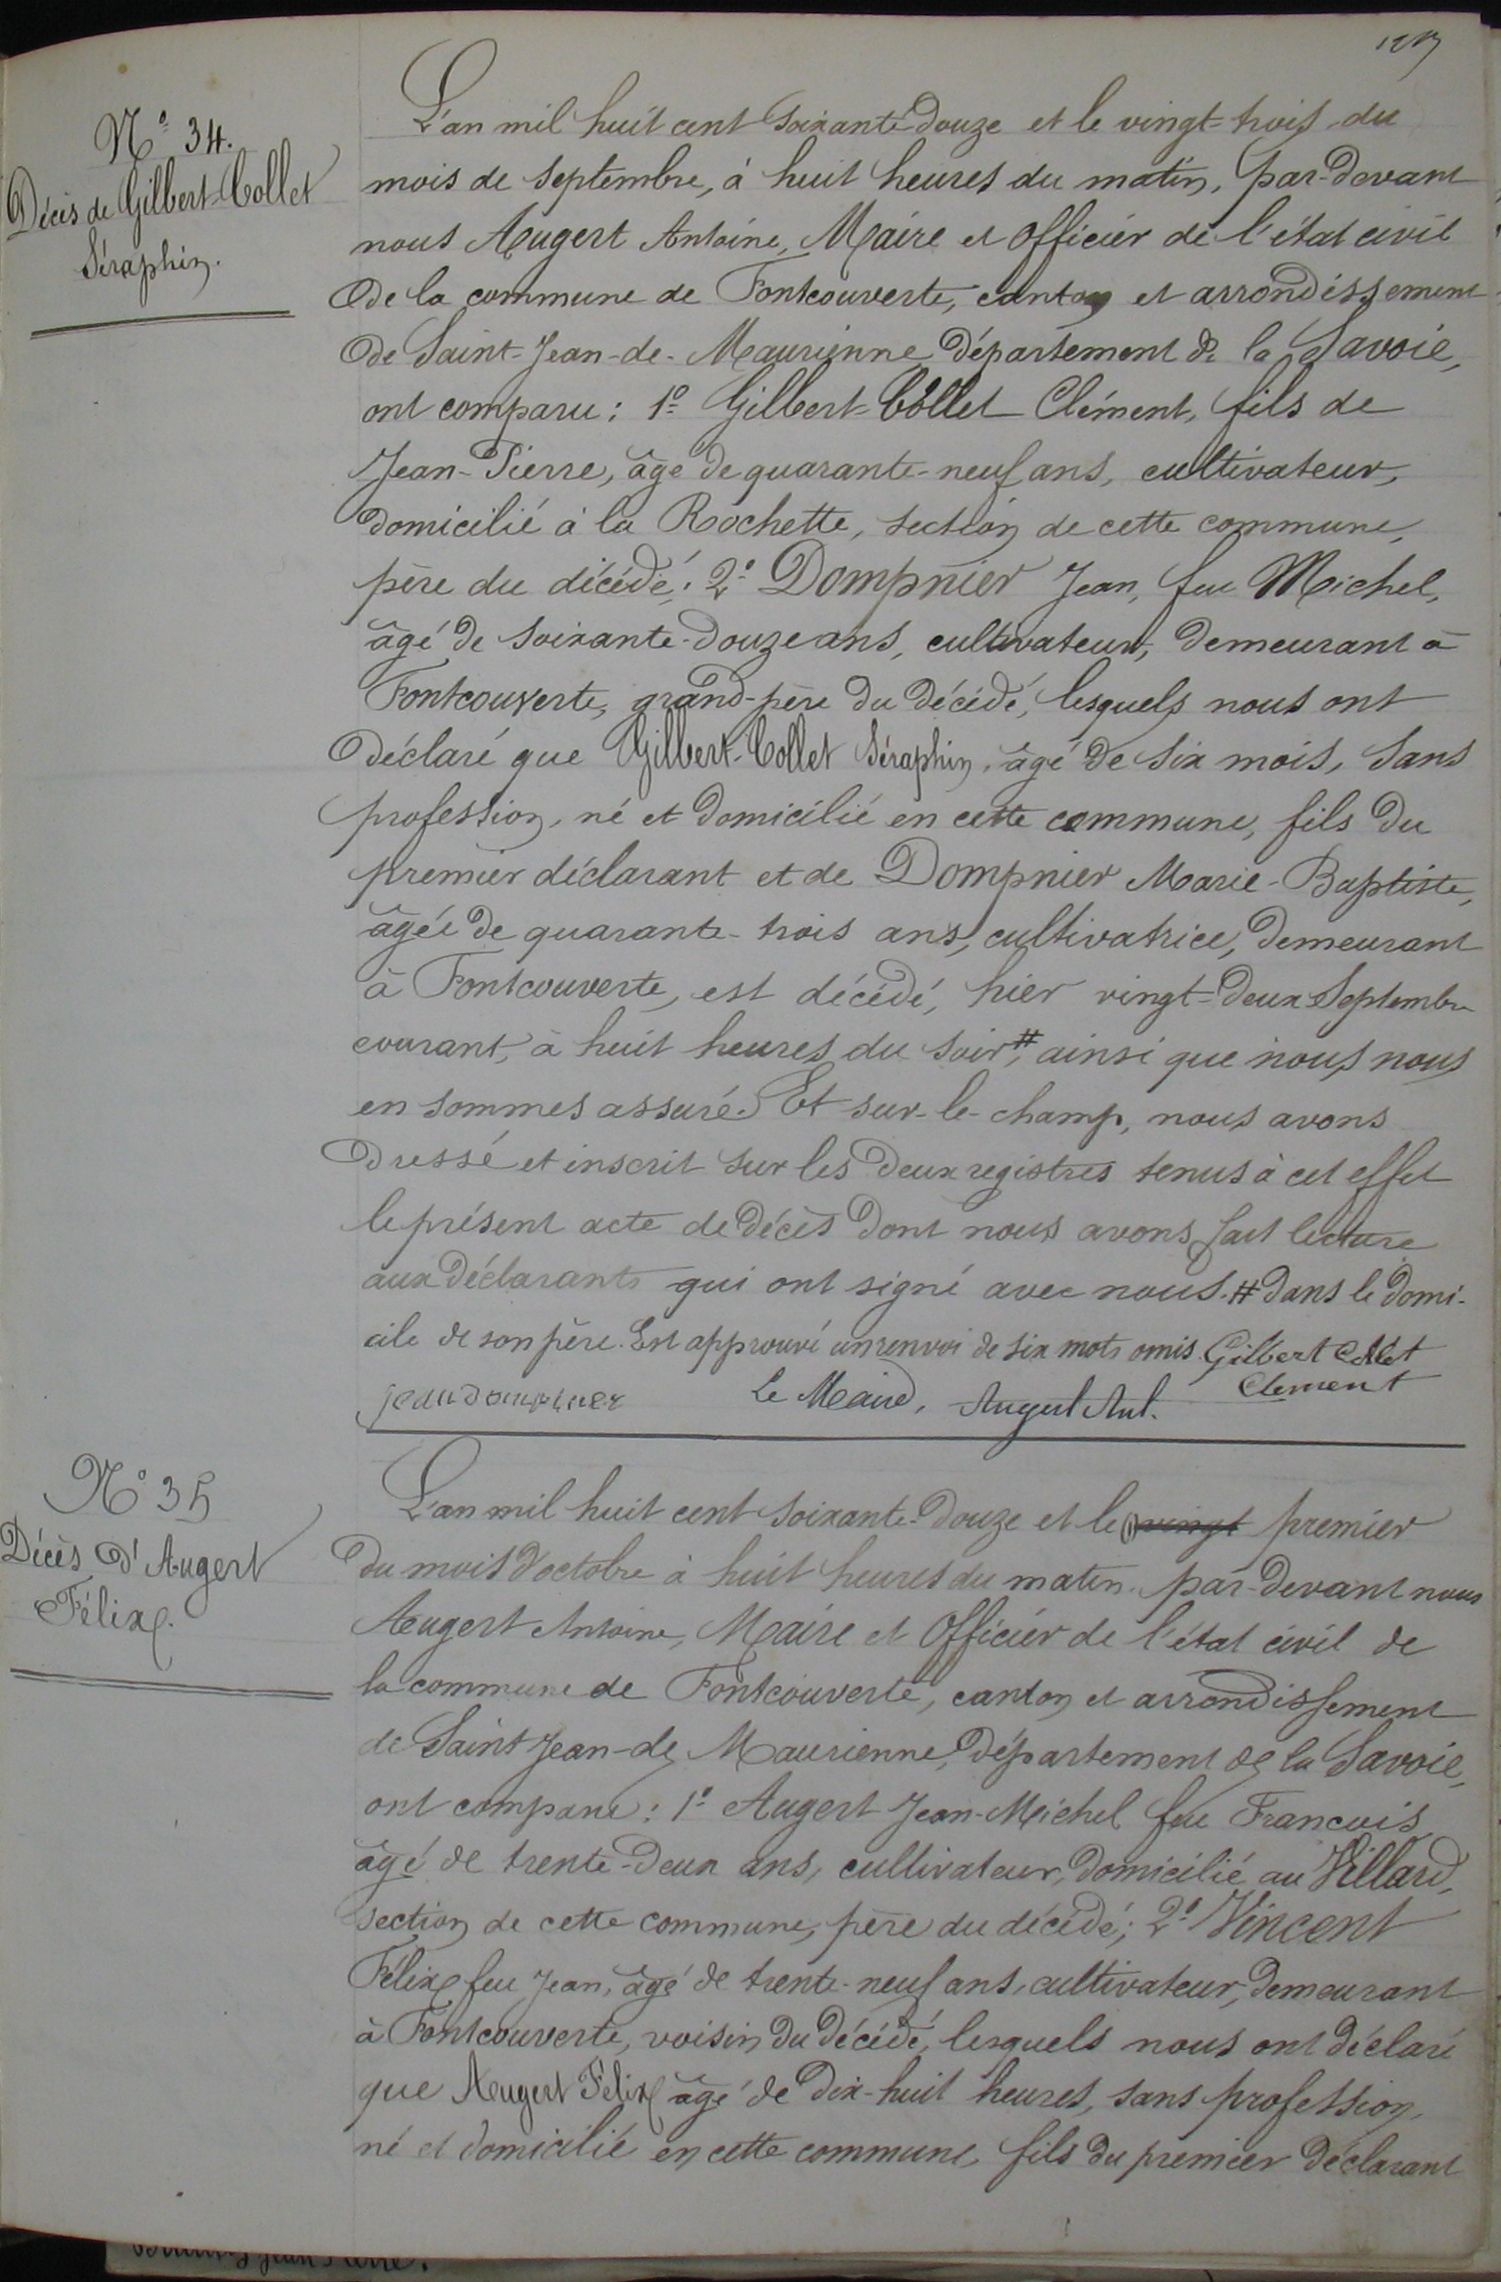 N° 34.
Décès de Gilbert-Collet
Séraphin.
L'an mil huit cent soixante-douze et le vingt-trois du
mois de septembre, à huit heures du matin, par-devant
nous Augert Antoine, Maire et officier de l'état civil
de la commune de Fontcouverte, canton et arrondissement
de Saint-Jean-de-Maurienne, département de la Savoie,
ont comparu : 1° Gilbert-Collet Clément, fils de
Jean-Pierre, âgé de quarante-neuf ans, cultivateur,
domicilié à la Rochette, section de cette commune,
père du décédé ; 2° Dompnier Jean, feu Michel,
âgé de soixante-douze ans, cultivateur, demeurant à
Fontcouverte, grand-père du décédé, lesquels nous ont
déclaré que Gilbert-Collet Séraphin, âgé de six mois, sans
profession, né et domicilié en cette commune, fils du
premier déclarant et de Dompnier Marie-Baptiste,
âgée de quarante-trois ans, cultivatrice, demeurant
à Fontcouverte, est décédé, hier vingt-deux Septembre
courant, à huit heures du soir #, ainsi que nous nous
en sommes assuré. Et sur-le-champ, nous avons
dressé et inscrit sur les deux registres tenus à cet effet
le présent acte de décès dont nous avons fait lecture
aux déclarants qui ont signé avec nous. # dans le domi-
cile de son père. Est approuvé un renvoi de six mots omis. Gilbert Collet
Clement
jean dompnier Le Maire, Augert Ant.
N° 35
Décès d'Augert
Félix.
L'an mil huit cent soixante-douze et le vingt premier
du mois d'octobre à huit heures du matin, par-devant nous
Augert Antoine, Maire et Officier de l'état civil de
la commune de Fontcouverte, canton et arrondissement
de Saint Jean-de Maurienne, département de la Savoie,
ont comparu : 1° Augert Jean-Michel feu Francois
âgé de trente-deux ans, cultivateur, domicilié au Villard,
section de cette commune, père du décédé ; 2° Vincent
Félix feu Jean, âgé de trente-neuf ans, cultivateur, demeurant
à Fontcouverte, voisin du décédé, lesquels nous ont déclaré
que Augert Félix âgé de dix-huit heures, sans profession,
né et domicilié en cette commune, fils du premier déclarant